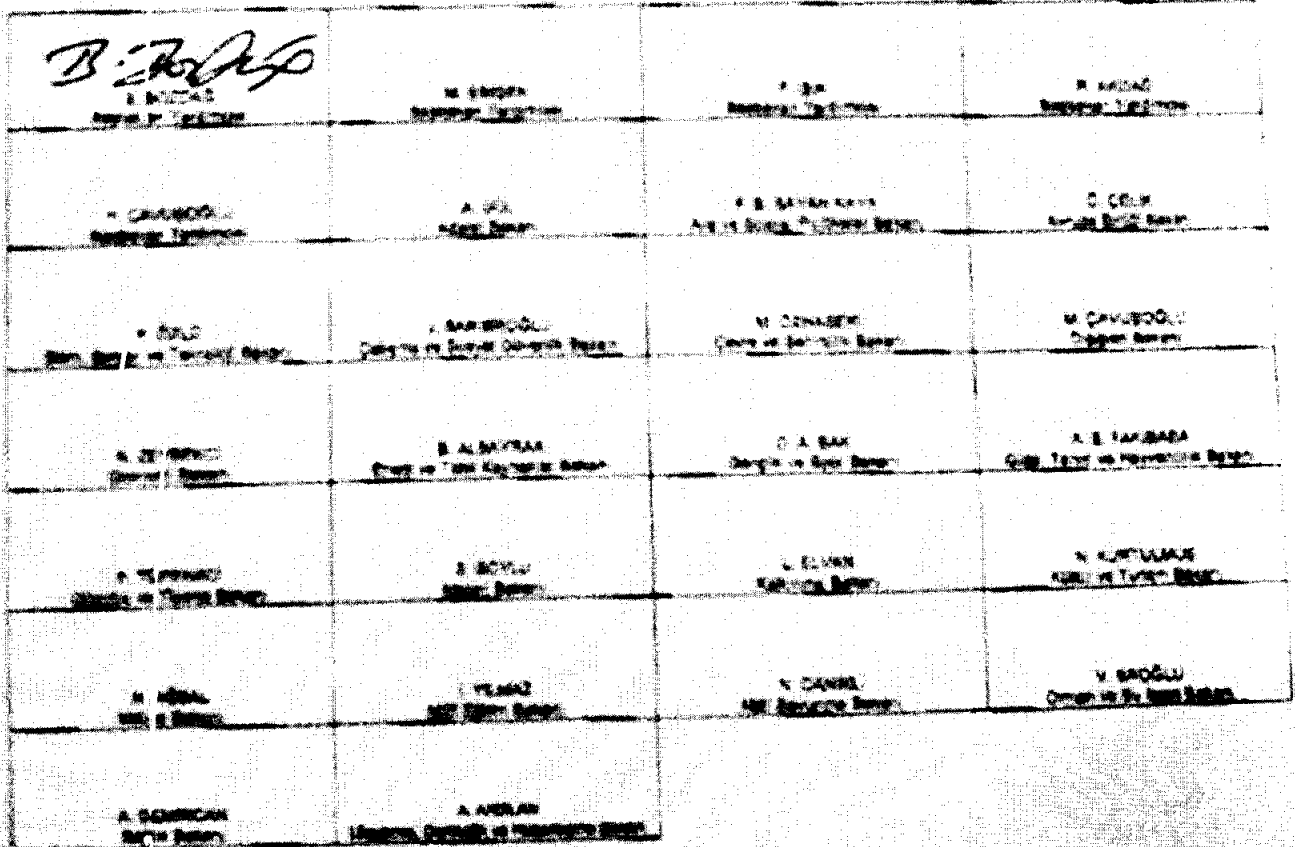 B. Bozdağ
B. BOZDAĞ
Başbakan Yardımcısı
M. ŞİMŞEK
Başbakan Yardımcısı
F. IŞIK
Başbakan Yardımcısı
R. AKDAĞ
Başbakan Yardımcısı
H. ÇAVUŞOĞLU
Başbakan Yardımcısı
A. GÜL
Adalet Bakanı
F. B. SAYAN KAYA
Aile ve Sosyal Politikalar Bakanı
Ö. ÇELİK
Avrupa Birliği Bakanı
F. ÖZLÜ
Bilim, Sanayi ve Teknoloji Bakanı
J. SARIEROĞLU
Çalışma ve Sosyal Güvenlik Bakanı
M. ÖZHASEKİ
Çevre ve Şehircilik Bakanı
M. ÇAVUŞOĞLU
Dışişleri Bakanı
N. ZEYBEKCİ
Ekonomi Bakanı
B. ALBAYRAK
Enerji ve Tabii Kaynaklar Bakanı
O. A. BAK
Gençlik ve Spor Bakanı
A. E. FAKIBABA
Gıda, Tarım ve Hayvancılık Bakanı
B. TÜFENKCİ
Gümrük ve Ticaret Bakanı
S. SOYLU
İçişleri Bakanı
L. ELVAN
Kalkınma Bakanı
N. KURTULMUŞ
Kültür ve Turizm Bakanı
N. AĞBAL
Maliye Bakanı
İ. YILMAZ
Millî Eğitim Bakanı
N. CANİKLİ
Millî Savunma Bakanı
V. EROĞLU
Orman ve Su İşleri Bakanı
A. DEMİRCAN
Sağlık Bakanı
A. ARSLAN
Ulaştırma, Denizcilik ve Haberleşme Bakanı